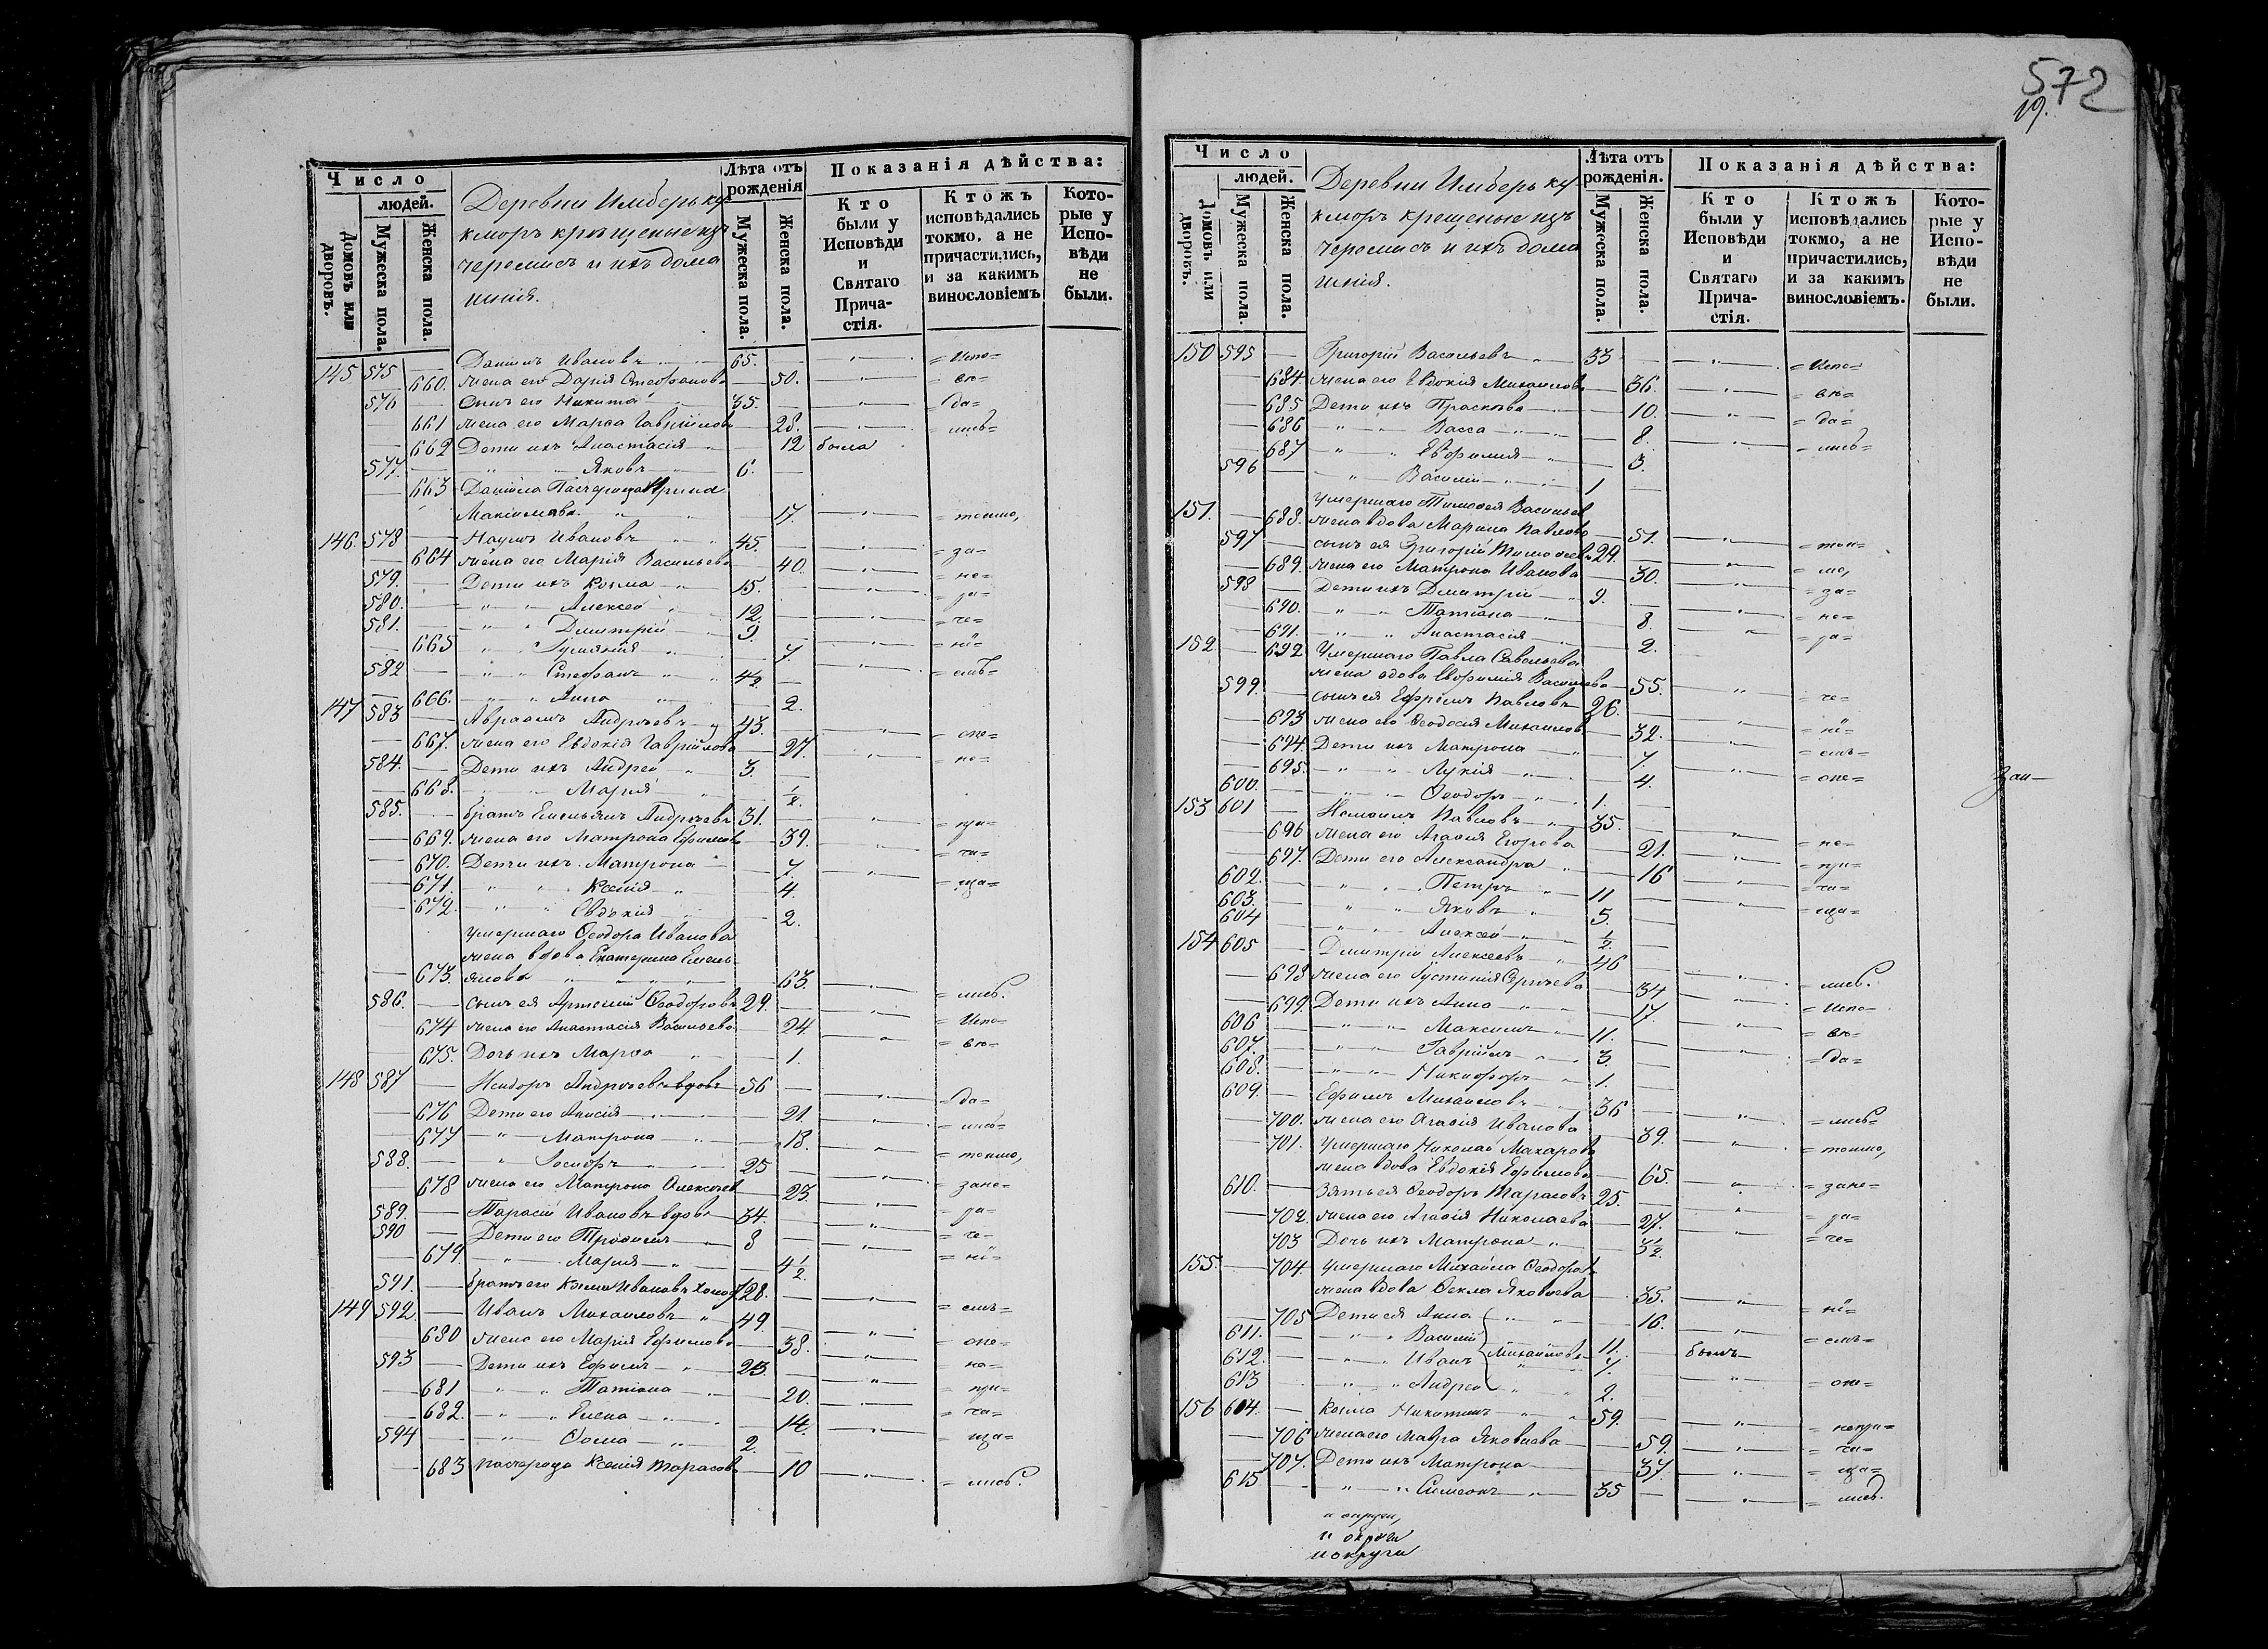 572
19.
Число
людей.
Домовъ или дворовъ.
Мужеска пола.
Женска пола.
Деревни Имберь ку
кморъ крещеные изъ
черемисъ и ихъ дома
шнія.
Лѣта отъ рожденія
Мужеска пола.
Женска пола.
Показанія дѣйства:
Кто были у Исповѣди и Святаго Причастія.
Ктожъ исповѣдались токмо, а не причастились, и за какимъ винословіемъ
Которые у Исповѣди не были.
145 575 — Данилъ Ивановъ 65. — = Испо=
660. жена его Дарія Стефанова — 50. = вѣ=
576 — сынъ его Никита 35. — = да=
661 жена его Марѳа Гаврійлова — 28. = лись=
662 Дети ихъ Анастасія — 12 была
577. — " " Яковъ 6. —
663 Данійла Пасчерица Ирина
Максимова. 17. = токмо,
146. 578 — Наумъ Ивановъ 45. — = за=
664 жена его Марія Васильева — 40. = не=
579. — Дети ихъ Козма 15. — = ра=
580. — " " Алексей 12. — = че=
581. — " " Дмитрій 9. — = ні=
665 " " Гуліянія — 7. = емъ=
582 — " " Стефанъ 4½ —
666. " " Анна — 2.
147 583 — Авраамъ Андреевъ 43. — = опе=
667. жена его Евдокія Гаврійлова — 27. = не=
584. — Дети ихъ Андрей 3. —
668. " " Марія — ½.
585. — братъ Емельянъ Андреевъ 31. — = при=
669. жена его Матрона Ефимова — 39. = ча=
670. Дети ихъ Матрона — 7. = ща=
671. " " Ксенія — 4.
672. " " Евдокія — 2.
умершаго Ѳеодора Иванова
жена вдова Екатерина Емель
673. янова — 63. = лись.
586. — сынъ ея Артемій Ѳеодоровъ 29. — = Испо=
674 жена его Анастасія Васильева — 24 = вѣ=
675. Дочь ихъ Марѳа — 1.
148 587 — Исидоръ Андреевъ вдовъ 56 — = да=
676 Дети его Анисія — 21. = лись=
677 " Матрона — 18. = токмо,
588. — " 25 — = зане=
678 жена его Матрона Алексеев — 23. = ра=
589. — Тарасій Ивановъ вдовъ 34. — = че=
590 — Дети его Трофимъ 8 — = ні=
679. " Марія — 4½
591. — братъ его Козма Ивановъ холос 28. — = емъ=
149 592. — Иванъ Михайловъ 49. — = опе=
680 жена его Марія Ефимова — 38. = на=
593 — Дети ихъ Ефимъ 23. — = при=
681 " " Татіана — 20. = ча=
682. " " Елена — 14. = ща=
594 — " Ѳома 2. —
683 пасчерица Ксенія Тарасова — 10 = лись.
Число
людей.
Домовъ или дворовъ.
Мужеска пола.
Женска пола.
Деревни Имберь ку
кморъ крещеные изъ
черемисъ и ихъ дома
шнія.
Лѣта отъ рожденія.
Мужеска пола.
Женска пола.
Показанія дѣйства:
Кто были у Исповѣди и Святаго Причастія.
Ктожъ исповѣдались токмо, а не причастились, и за какимъ винословіемъ.
Которые у Исповѣди не были.
150 595 — Григорій Васильевъ 33 — = Испо=
684. жена его Евдокія Михайлова — 36. = вѣ=
685 Дети ихъ Прасковя — 10. = да=
686 " " Васса — 8. = лись=
687 " " Евфимія — 3.
596 — " Василій 1 —
151. Умершаго Тимоѳея Васильев
688. жена вдова Марина Павлова — 51. = ток=
597 — сынъ ея Григорій Тимоѳеевъ 29. — = мо,
689. жена его Матрона Иванова — 30. = за=
598 — Дети ихъ Дмитрій 9. — = не=
690. " " Татіана — 8. = ра=
691. " " Анастасія — 2.
152 692 Умершаго Павла Савельева
жена вдова Евфимія Васильева — 55. = че=
599. — сынъ ея Ефремъ Павловъ 26. — = ні=
693 жена его Ѳеодосія Михайлов — 32. = емъ=
694. Дети ихъ Матрона — 7. = опе=
695. " " Лукія — 4.
600. — " " Ѳеодоръ 1. —
153 601 — Павловъ 35. — = не=
696 жена его Агаѳія Егорова — 21. = при=
697. Дети его Александра — 16 = ча=
602. — " " Петръ 11 — = ща=
603. — " " Яковъ 5. —
604 — " " Алексей ½. —
154 605 — Дмитрій Алексеевъ 46 — = лись.
698 жена его Іустинія Сергеева — 34 = Испо=
699. Дети ихъ Анна — 17. = вѣ=
606 — " " Максимъ 11. — = да=
607. — " " Гаврійлъ 3. —
608. — " " Никифоръ 1. —
609. — Ефимъ Михайловъ 36 — = лись=
700. жена его Агаѳія Иванова — 39. = токмо,
701. Умершаго Николай Макаровъ
жена вдова Евдокія Ефимова — 65. = зане=
610. — Зять ея Ѳеодоръ Тарасовъ 25. — = ра=
702. жена его Агаѳія Николаева — 27. = че=
703 Дочь ихъ Матрона — 3½.
155. 704. Умершаго Михайла Ѳеодоров
жена вдова Ѳекла Яковлева — 35. = ні=
705 Дети ея Анна — 16. = емъ=
611. — " " Василій 11. — былъ
612. — " " Иванъ Михайловы 7.
613 — " " Андрей 2. = опе=
156 614. — Козма Никитинъ 59. — = непри=
706 жена его Мавра Яковлева — 59. = ча=
707. Дети ихъ Матрона — 37. = ща=
615 — " " Симеонъ 35 — = лись.